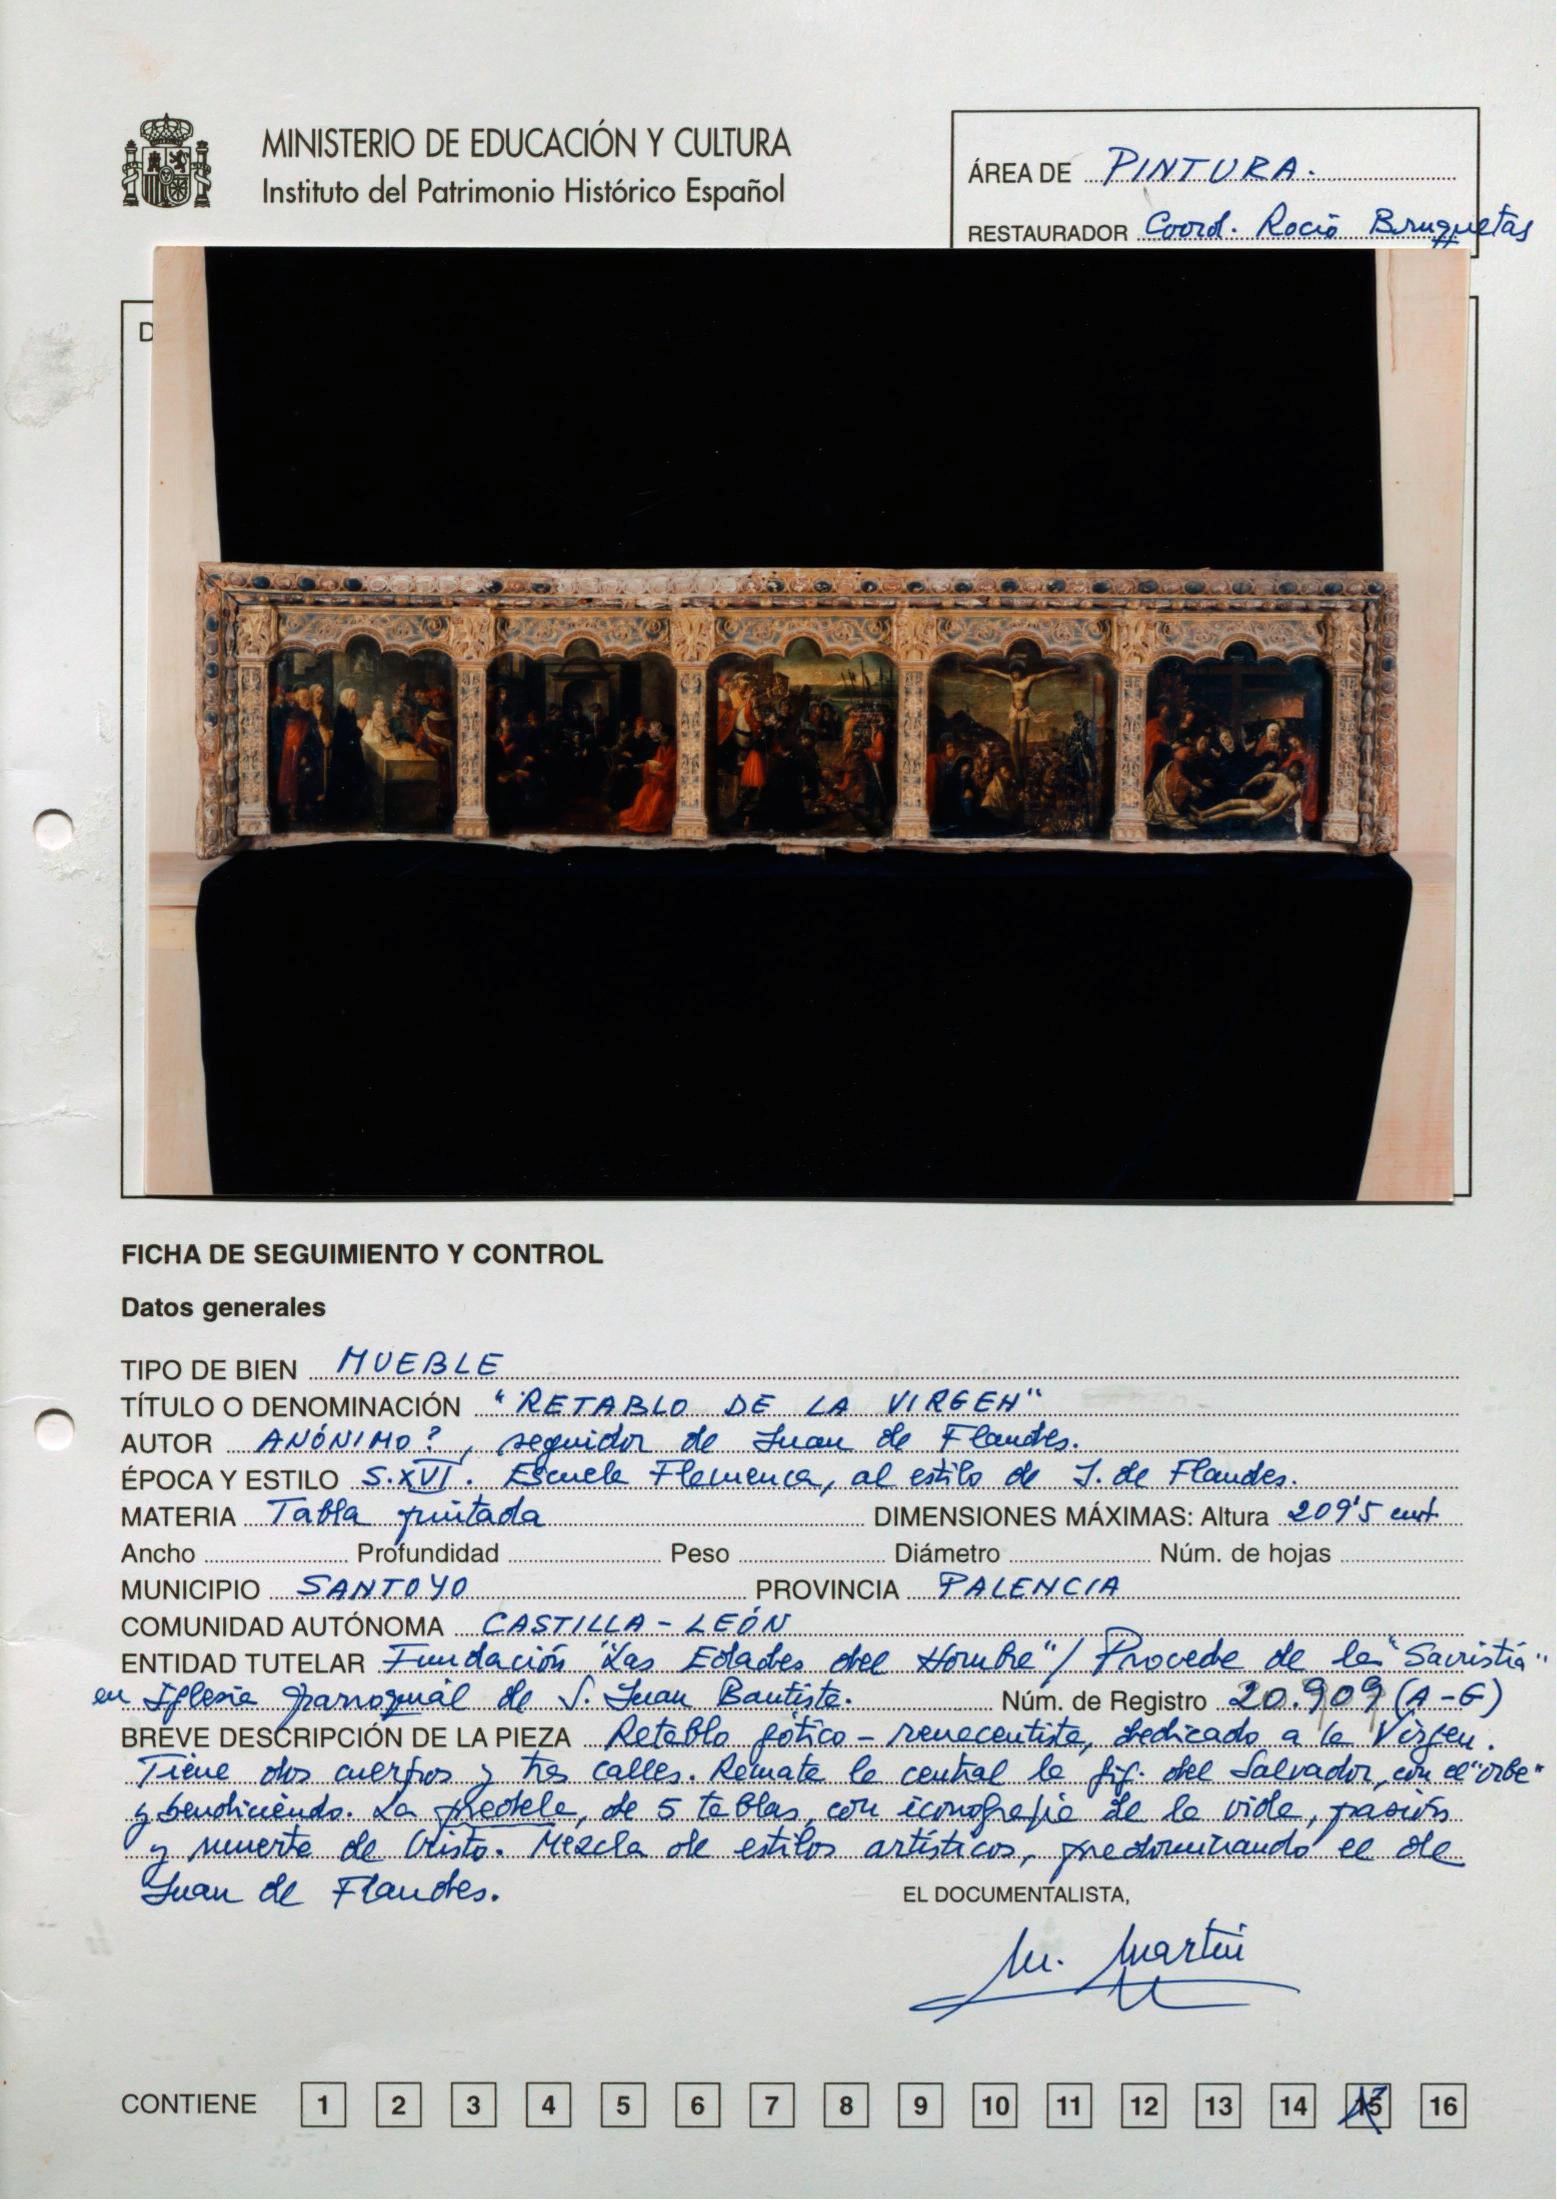 MINISTERIO DE EDUCACIÓN Y CULTURA
Instituto del Patrimonio Histórico Español
ÁREA DE PINTURA.
RESTAURADOR Coord. Rocío Bruquetas
D
FICHA DE SEGUIMIENTO Y CONTROL
Datos generales
TIPO DE BIEN MUEBLE
TÍTULO O DENOMINACIÓN "RETABLO DE LA VIRGEN"
AUTOR ANÓNIMO?, seguidor de Juan de Flandes.
ÉPOCA Y ESTILO S.XVI. Escuela Flamenca, al estilo de J. de Flandes.
MATERIA Tabla pintada DIMENSIONES MÁXIMAS: Altura 209'5 cmt.
Ancho Profundidad Peso Diámetro Núm. de hojas
MUNICIPIO SANTOYO PROVINCIA PALENCIA
COMUNIDAD AUTÓNOMA CASTILLA-LEÓN
ENTIDAD TUTELAR Fundación "Las Edades del Hombre"/ Procede de la "Sacristía"
en Iglesia parroquial de S. Juan Bautista. Núm. de Registro 20.909 (A-G)
BREVE DESCRIPCIÓN DE LA PIEZA Retablo gótico-renacentista, dedicado a la Virgen.
Tiene dos cuerpos y tres calles. Remate la central la fig. del Salvador, con el "orbe"
y bendiciendo. La predela, de 5 tablas, con iconografía de la vida, pasión
y muerte de Cristo. Mezcla de estilos artísticos, predominando el de
Juan de Flandes.
EL DOCUMENTALISTA,
M. Martín
CONTIENE 1 2 3 4 5 6 7 8 9 10 11 12 13 14 15 16